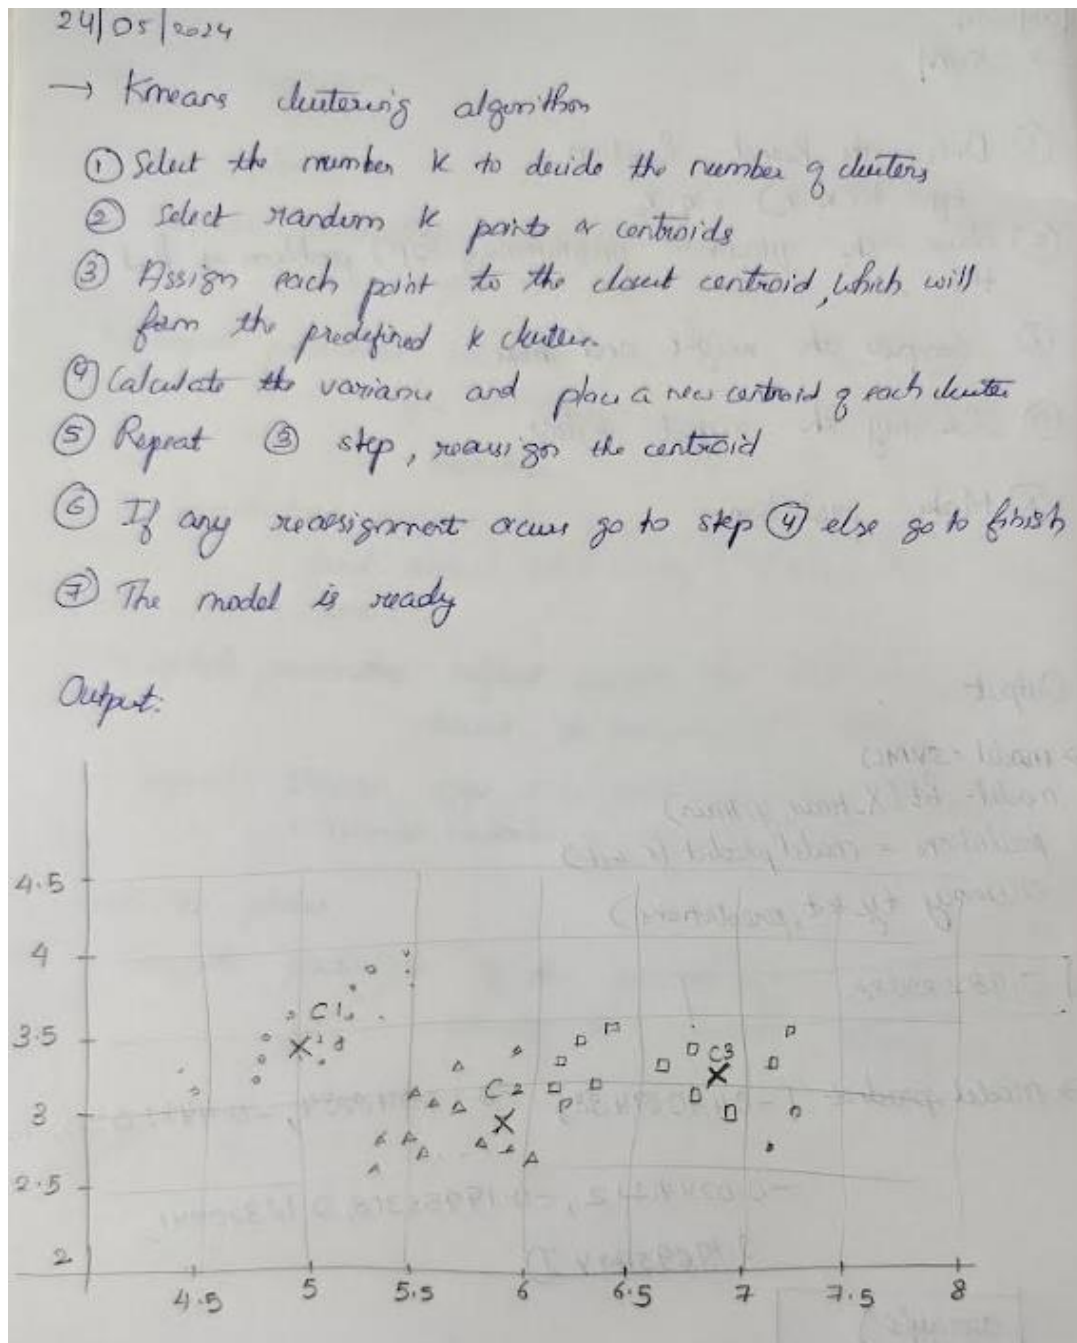 24/05/2024
→ Kmeans clutering algorithm
① Select the number K to decide the number of clusters
② Select random K points or centroids
③ Assign each point to the closest centroid, which will
form the predefined K cluster.
④ Calculate the variance and place a new centroid of each cluster
⑤ Repeat ③ step, reassign the centroid
⑥ If any reassignment occurs go to step ④ else go to finish
⑦ The model is ready
Output:
4.5
4
3.5
3
2.5
2
C1
C2
C3
4.5 5 5.5 6 6.5 7 7.5 8